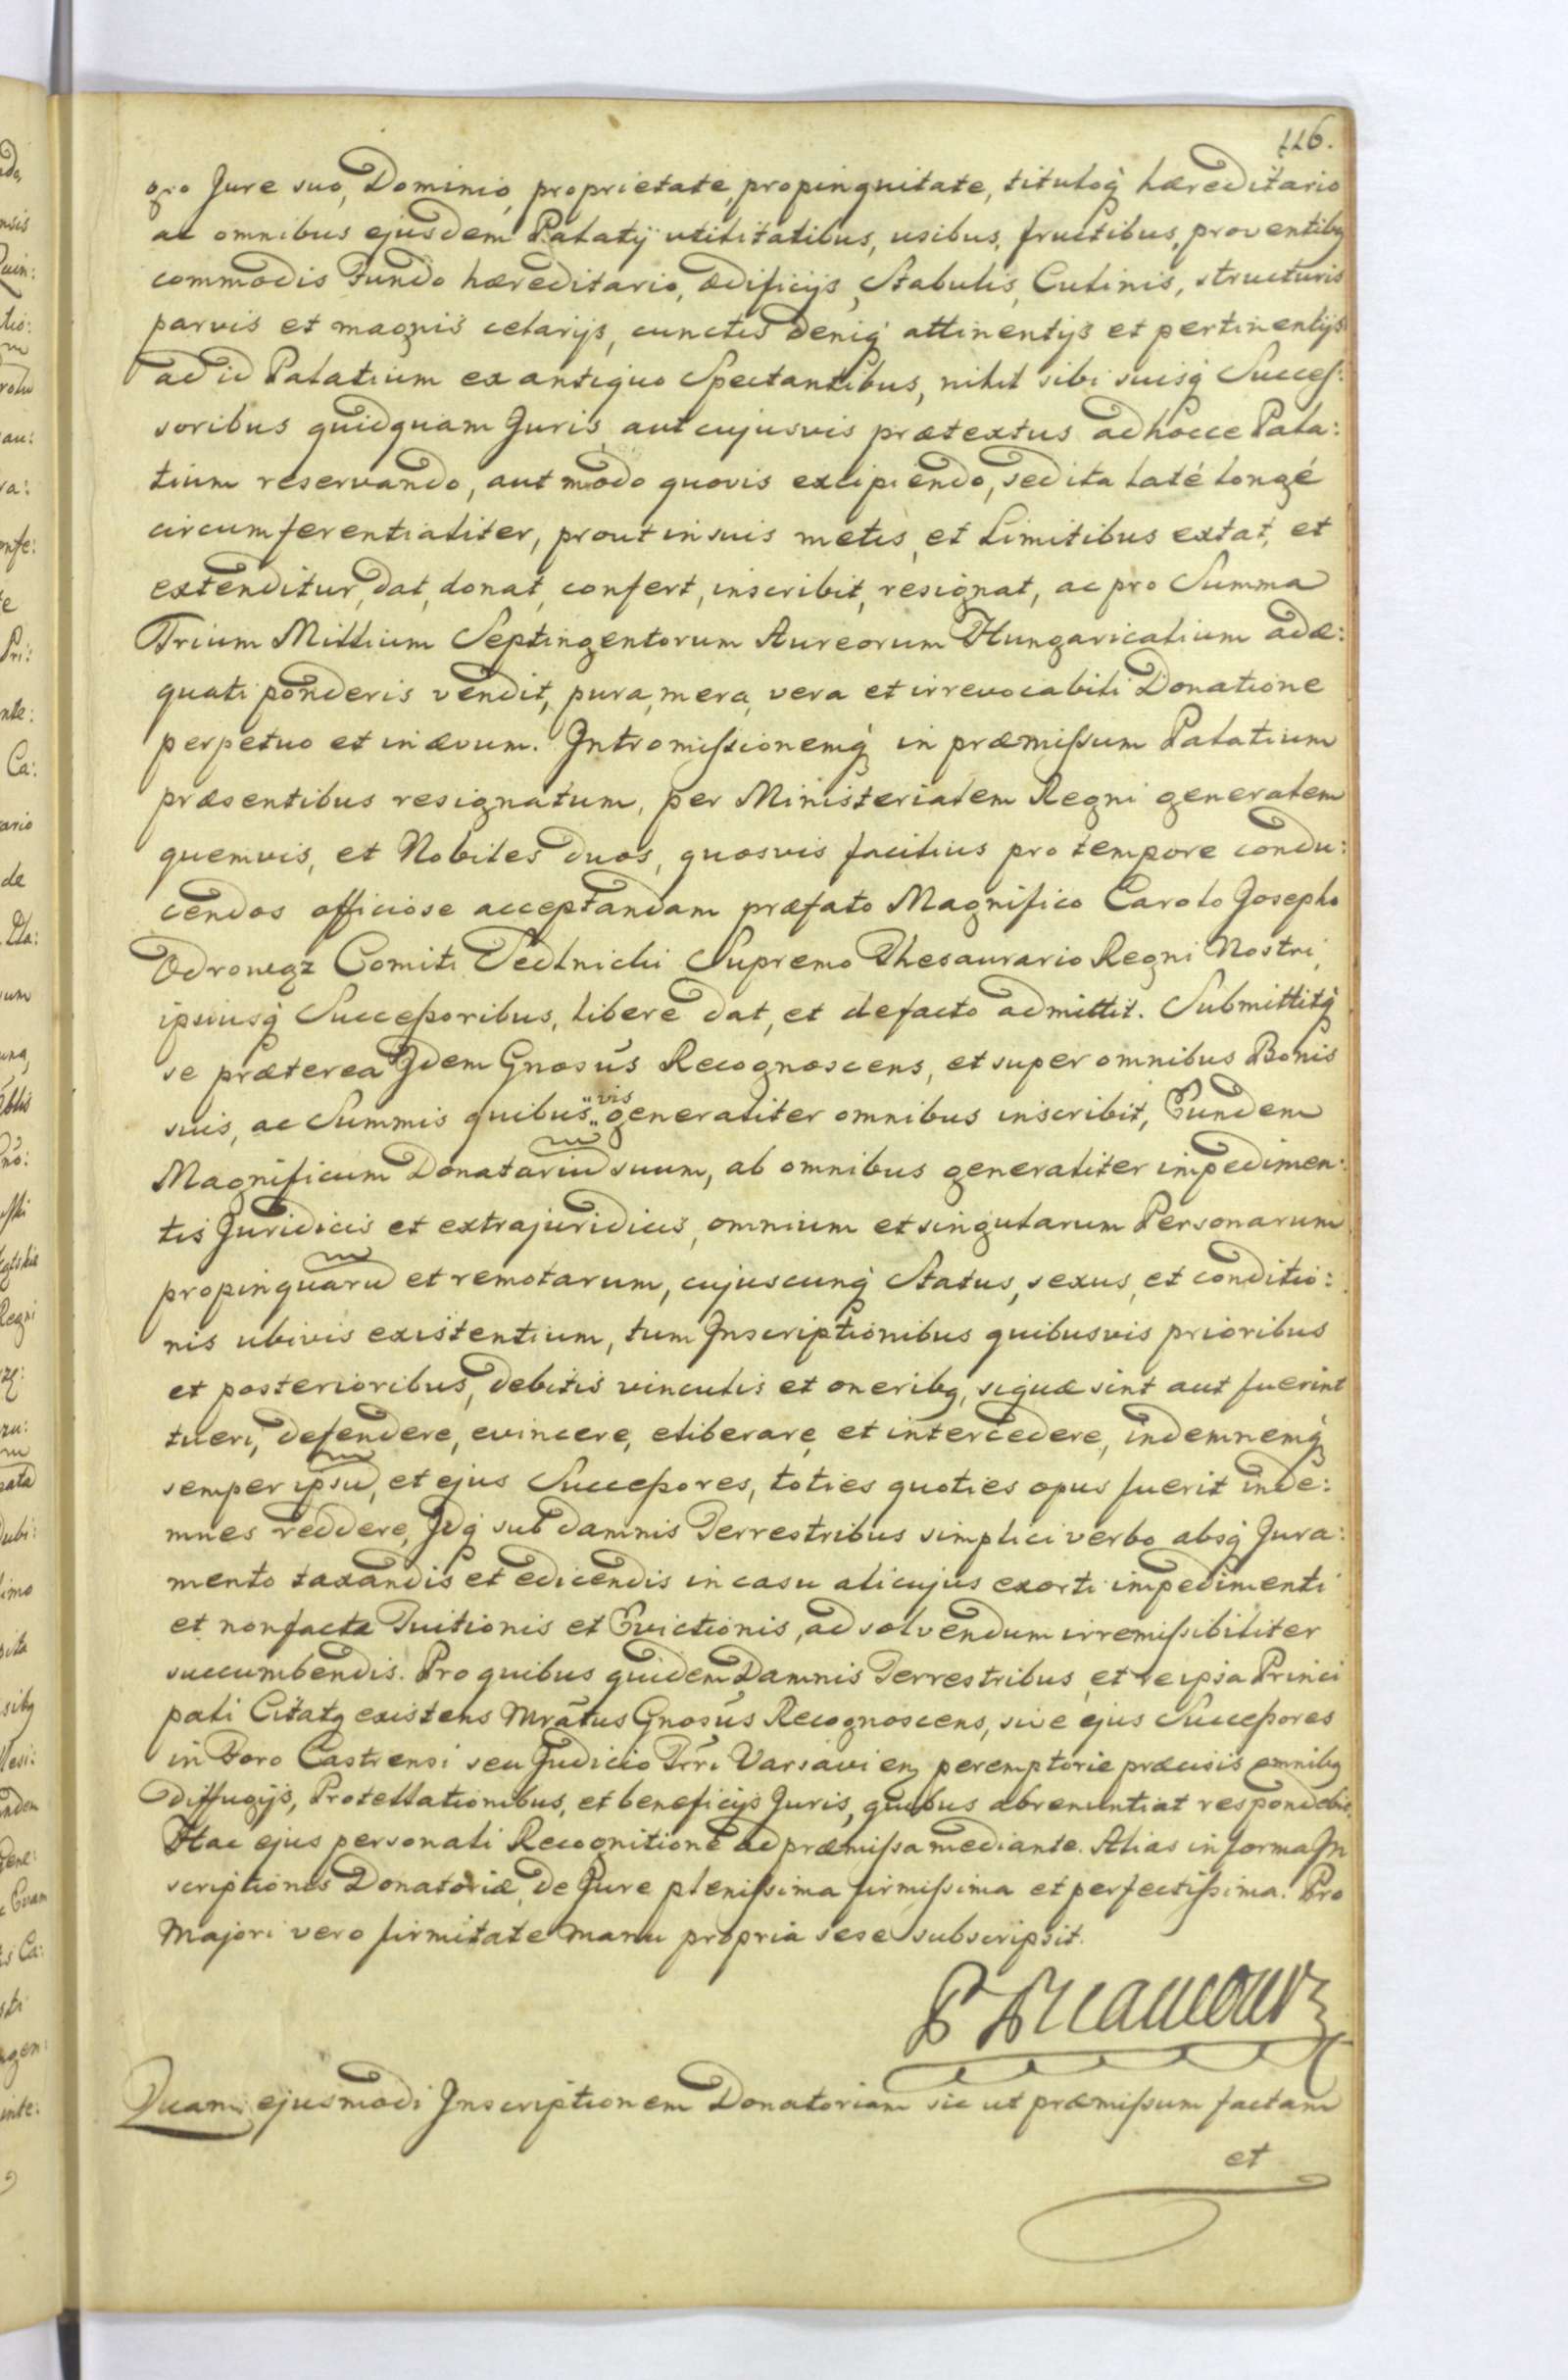 116.
gro Jure suo, Dominio, proprietate, propinquitate, tituloq́ hæreditario
ac omnibus ejusdem Palatÿ utilitatibus, usibus, fructibus, proventibq
commodis Fundo hæreditario, ædificÿs, Stabulis, Culinis, structuris
parvis et magnis celarÿs, cunctis deniq́ attinentÿs et pertinentÿs
ad id Palatium ex antiquo Spectantibus, nihil sibi suisq́ Succeſ:
soribus quidquam Juris, aut cujusvis prætextus ad hocce Pala:
tium reservando, aut modo quovis excipiendo, sed ita laté longé
circumferentialiter, prout in suis metis, et Limitibus extat, et
extenditur, dat, donat, confert, inscribit, resignat, ac pro Summa
Trium Millium Septingentorum Aureorum Hungaricalium adæ:
quati ponderis vendit, pura, mera, vera et irrevocabili Donatione
perpetuo et in ævum. Intromiſsionemq́ in præmiſsum Palatium
præsentibus resignatum, per Ministerialem Regni generalem
quemvis, et Nobiles duos, quosvis facilius pro tempore condu:
cendos officiose acceptandam præfato Magnifico Carolo Josepho
Odrowąz Comiti Sedlnicki Supremo Thesaurario Regni Nostri,
ipsiusq́ Succeſsoribus, libere dat, et defacto admittit. Submittitq́
se præterea Idem Gnosus̄ Recognoscens, et super omnibus Bonis
suis, ac Summis quibus„vis„ generaliter omnibus inscribit, Eundem
Magnificum Donatariu̅ suum, ab omnibus generaliter impedimen:
tis Juridicis et extrajuridicis, omnium et singularum Personarum
propinquaru̅ et remotarum, cujuscunq́ Status, sexus, et conditio:
nis ubivis existentium, tum Inscriptionibus quibusvis prioribus
et posterioribus, debitis vinculis et oneribq, siquæ sint aut fuerint
tueri, defendere, evincere, eliberare, et intercedere, indemnemq́
semper ipsu̅, et ejus Succeſsores, toties quoties opus fuerit inde:
mnes reddere, Idq́ sub damnis Terrestribus simplici verbo absq́ Jura:
mento taxandis et edicendis in casu alicujus exorti impedimenti
et non facta Tuitionis et Evictionis, ad solvendum irremiſsibiliter
succumbendis. Pro quibus quidem Damnis Terrestribus, et re ipsa Princi
pali Citatq existens Mrātus Gnosus̄ Recognoscens, sive ejus Succeſsores
in Foro Castrensi seu Judicio Trri Varsavien peremptorie præcisis omnibq
Diffugÿs, Protellationibus, et beneficÿs Juris, quibus abrenuntiat respondebit,
Hac ejus personali Recognitione ad præmiſsa mediante. Alias in forma In
scriptiones Donatoriæ, de Jure pleniſsima firmiſsima et perfectiſsima. Pro
Majori vero firmitate manu propria sese subscripsit.
P Ricaucour
Quam ejusmodi Inscriptionem Donatoriam sic ut præmiſsum factam
et